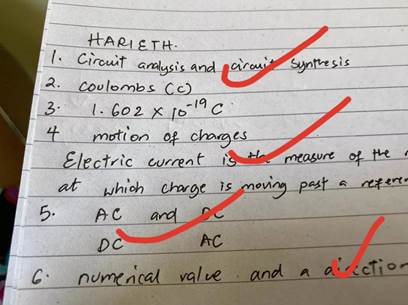 HARIETH.
1. Circuit analysis and circuit synthesis
2. Coulombs (c)
3. 1.602 x 10-19 C
4 motion of charges
Electric current is the measure of the
at which charge is moving past a
5. AC and DC
DC AC
6. numerical value and a direction